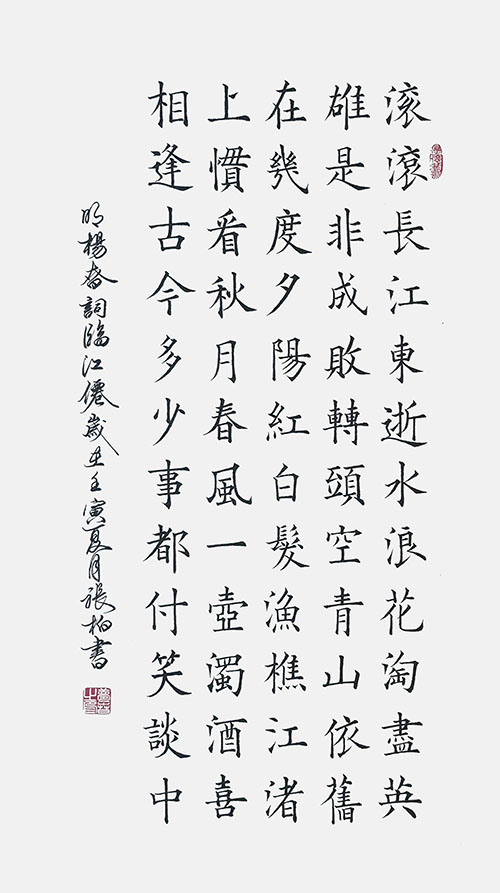 滚滾長江東逝水浪花淘盡英
雄是非成敗轉頭空青山依舊
在幾度夕陽紅白髮漁樵江渚
上慣看秋月春風一壺濁酒喜
相逢古今多少事都付笑談中
明楊昚詞臨江僊歲在壬寅夏月張柏書